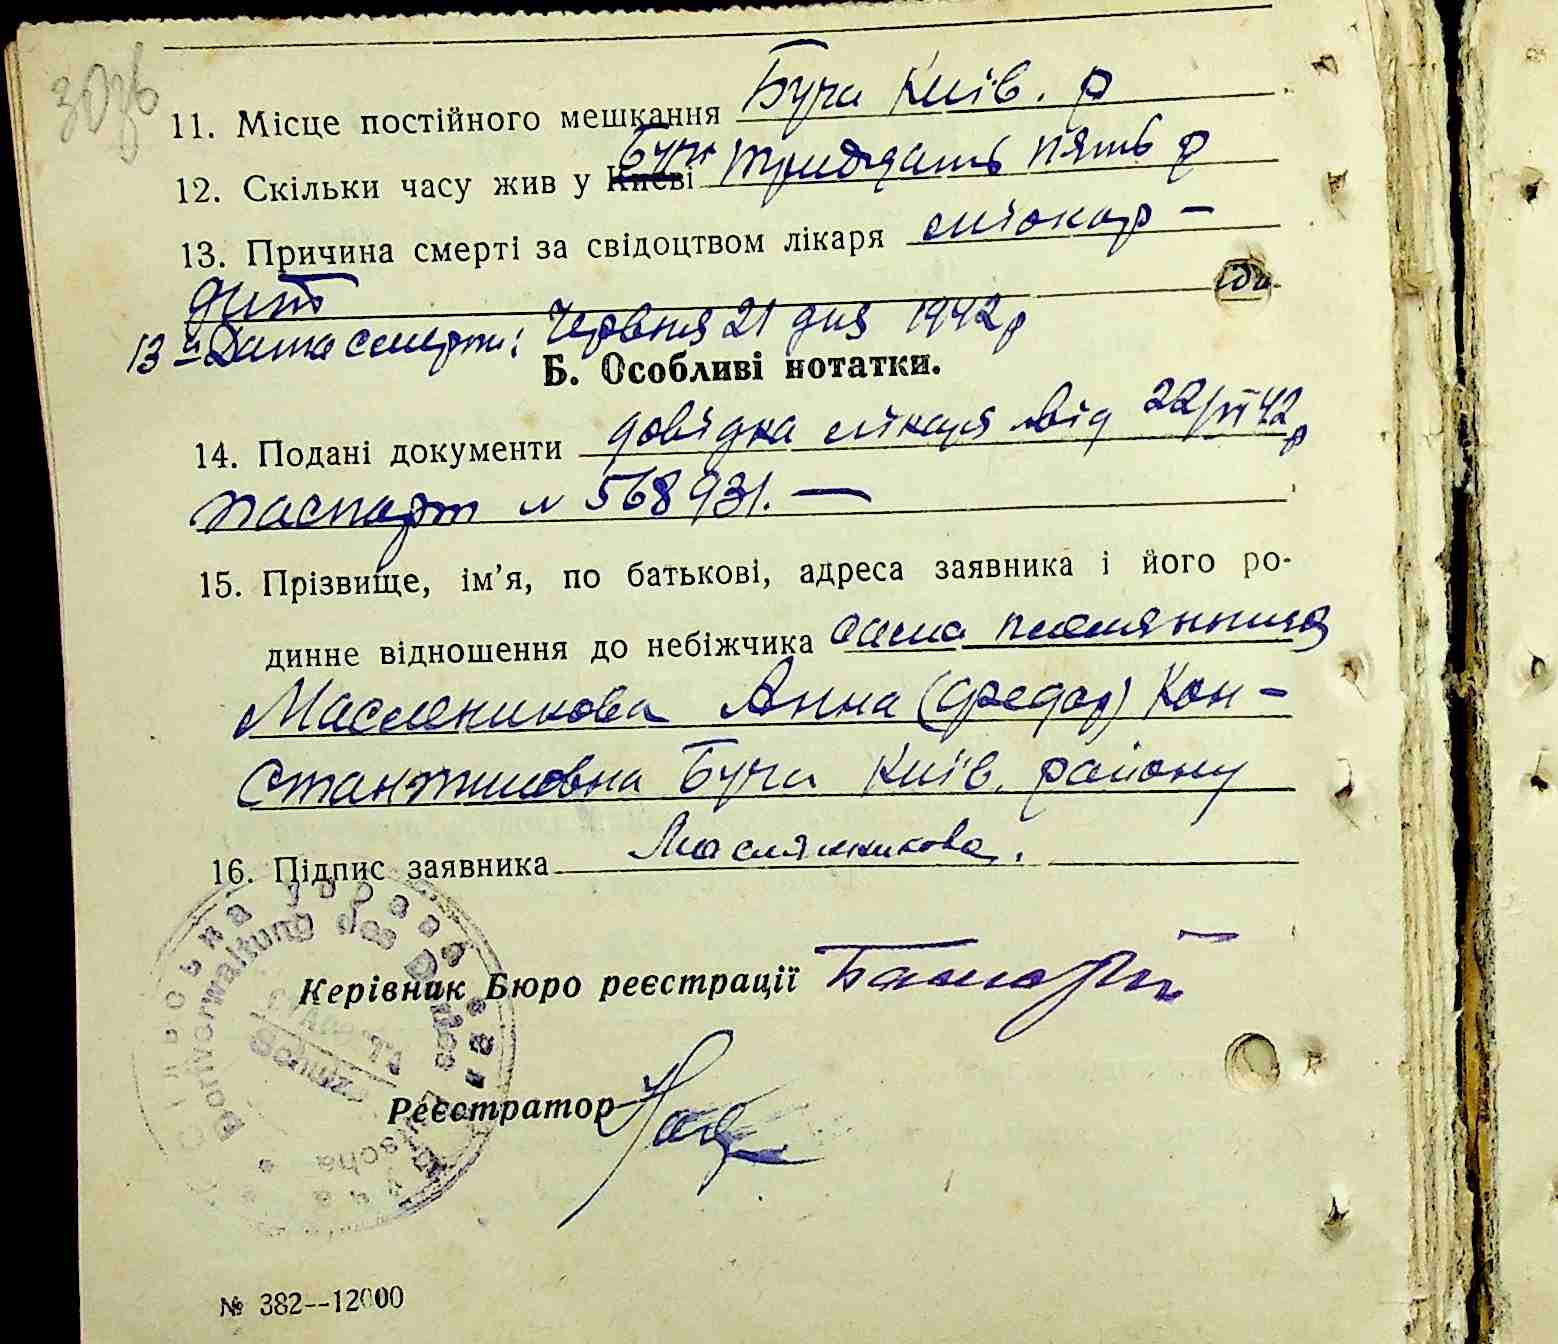 11. Місце постійного мешкання Буча Київ. р
12. Скільки часу жив у Києві Бучі тридцять пять р
13. Причина смерті за свідоцтвом лікаря міокар-
дит
13а Дата смерти: Червня 21 дня 1942 р
Б. Особливі нотатки.
14. Подані документи довідка лікаря від 22/VI 42 р
паспорт № 568931. —
15. Прізвище, ім’я, по батькові, адреса заявника і його ро-
динне відношення до небіжчика племянниця
Масленикова Анна (Федор) Кон-
стантиновна Буча Київ. району
16. Підпис заявника Маслянникова.
Сільська управа сел. Буча
Dorfverwaltung des Dorfes Butscha
Керівник Бюро реєстрації
Реєстратор
№ 382--12000